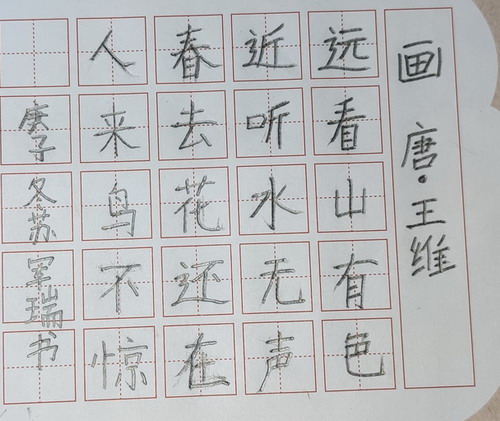 画 唐·王维
远看山有色
近听水无声
春去花还在
人来鸟不惊
庚子冬苏军瑞书